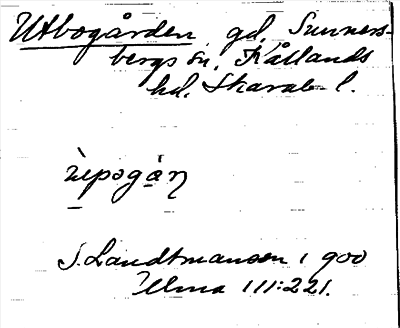 Utbogården gd, Sunners-
bergs sn, Kållands
hd. Skarab. l.
ùpogán
J. Landtmanson 1900
Ulma 111:221.